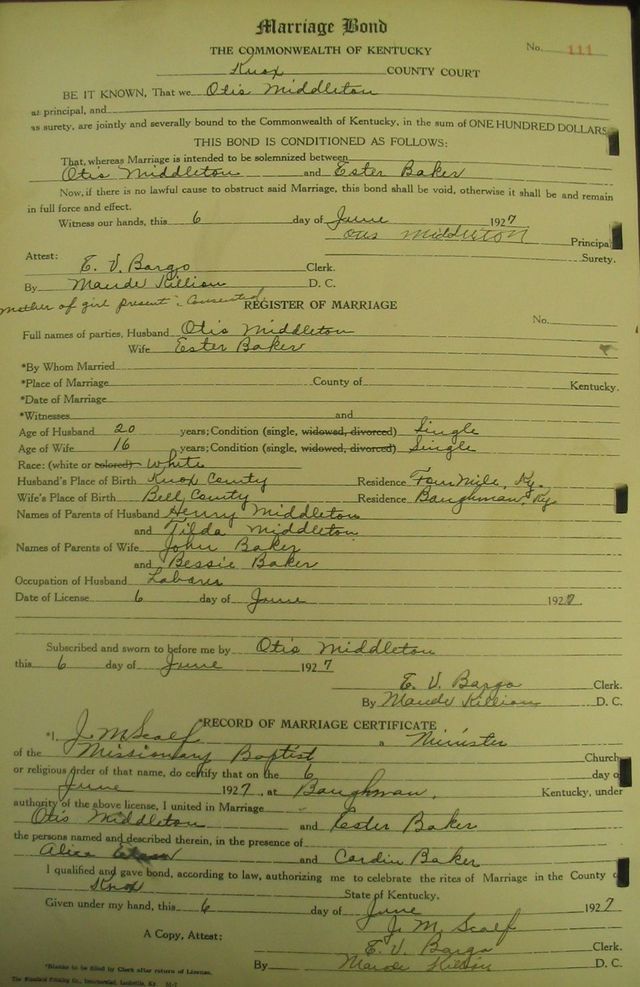 Marriage Bond
THE COMMONWEALTH OF KENTUCKY
No. 111
Knox COUNTY COURT
BE IT KNOWN, That we Otis Middleton
as principal, and
as surety, are jointly and severally bound to the Commonwealth of Kentucky, in the sum of ONE HUNDRED DOLLARS
THIS BOND IS CONDITIONED AS FOLLOWS:
That, whereas Marriage is intended to be solemnized between
Otis Middleton and Ester Baker
Now, if there is no lawful cause to obstruct said Marriage, this bond shall be void, otherwise it shall be and remain
in full force and effect.
Witness our hands, this 6 day of June 1927
Otis Middleton Principal
Surety.
Attest:
E. V. Bargo Clerk.
By Maude Killion D. C.
mother of girl present & Consented
REGISTER OF MARRIAGE
No.
Full names of parties, Husband Otis Middleton
Wife Ester Baker
*By Whom Married
*Place of Marriage County of Kentucky.
*Date of Marriage
*Witnesses and
Age of Husband 20 years; Condition (single, widowed, divorced) Single
Age of Wife 16 years; Condition (single, widowed, divorced) Single
Race: (white or colored) White
Husband's Place of Birth Knox County Residence Four Mile, Ky.
Wife's Place of Birth Bell County Residence Baughman, Ky.
Names of Parents of Husband Henry Middleton
and Tilda Middleton
Names of Parents of Wife John Baker
and Bessie Baker
Occupation of Husband Laborer
Date of License 6 day of June 1927.
Subscribed and sworn to before me by Otis Middleton
this 6 day of June 1927
E. V. Bargo Clerk.
By Maude Killion D. C.
*RECORD OF MARRIAGE CERTIFICATE
*I, J. M Scalf a Minister
of the Missionary Baptist Church
or religious order of that name, do certify that on the 6 day o
June 1927, at Baughman, Kentucky, under
authority of the above license, I united in Marriage
Otis Middleton and Ester Baker
the persons named and described therein, in the presence of
Alice and Cardin Baker
I qualified and gave bond, according to law, authorizing me to celebrate the rites of Marriage in the County o
Knox State of Kentucky.
Given under my hand, this 6 day of June 1927
J. M. Scalf
A Copy, Attest: E. V. Bargo Clerk.
By Maude Killion D. C.
*Blanks to be filled by Clerk after return of License.
The Standard Printing Co., Incorporated, Louisville, Ky.